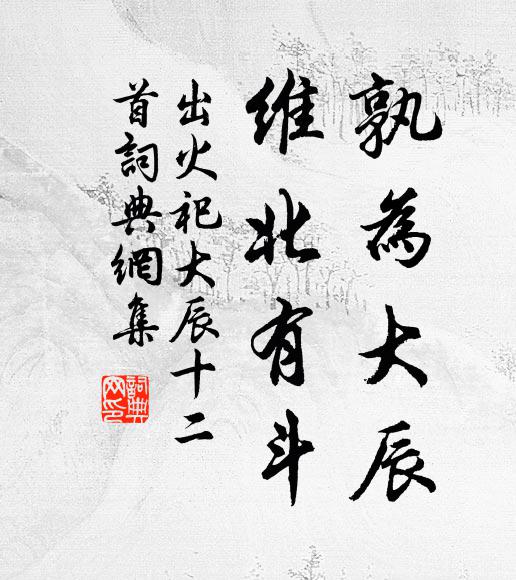 孰為大辰
維北有斗
出火祀大辰十二
首詞典網集
詞典網印